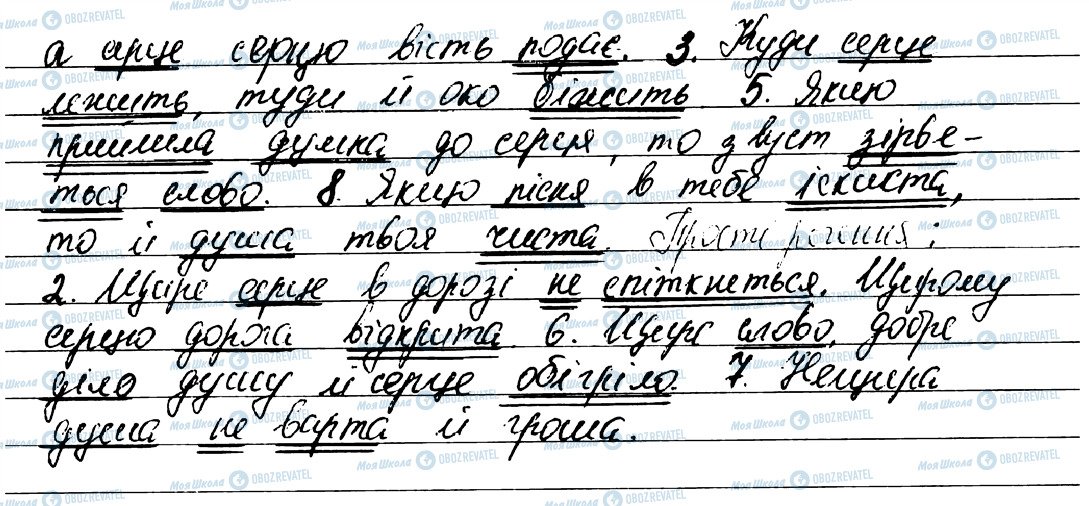 а серце серцю вість подає. 3. Куди серце
лежить, туди й око біжить. 5. Якщо
прийшла думка до серця, то з вуст зірве-
ться слово. 8. Якщо пісня в тебе іскиста,
то й душа твоя чиста. Прості речення:
2. Щире серце в дорозі не спіткнеться. Щирому
серцю дорога відкрита. 6. Щире слово, добре
діло душу й серце обігріло. 7. Нещира
душа не варта й гроша.